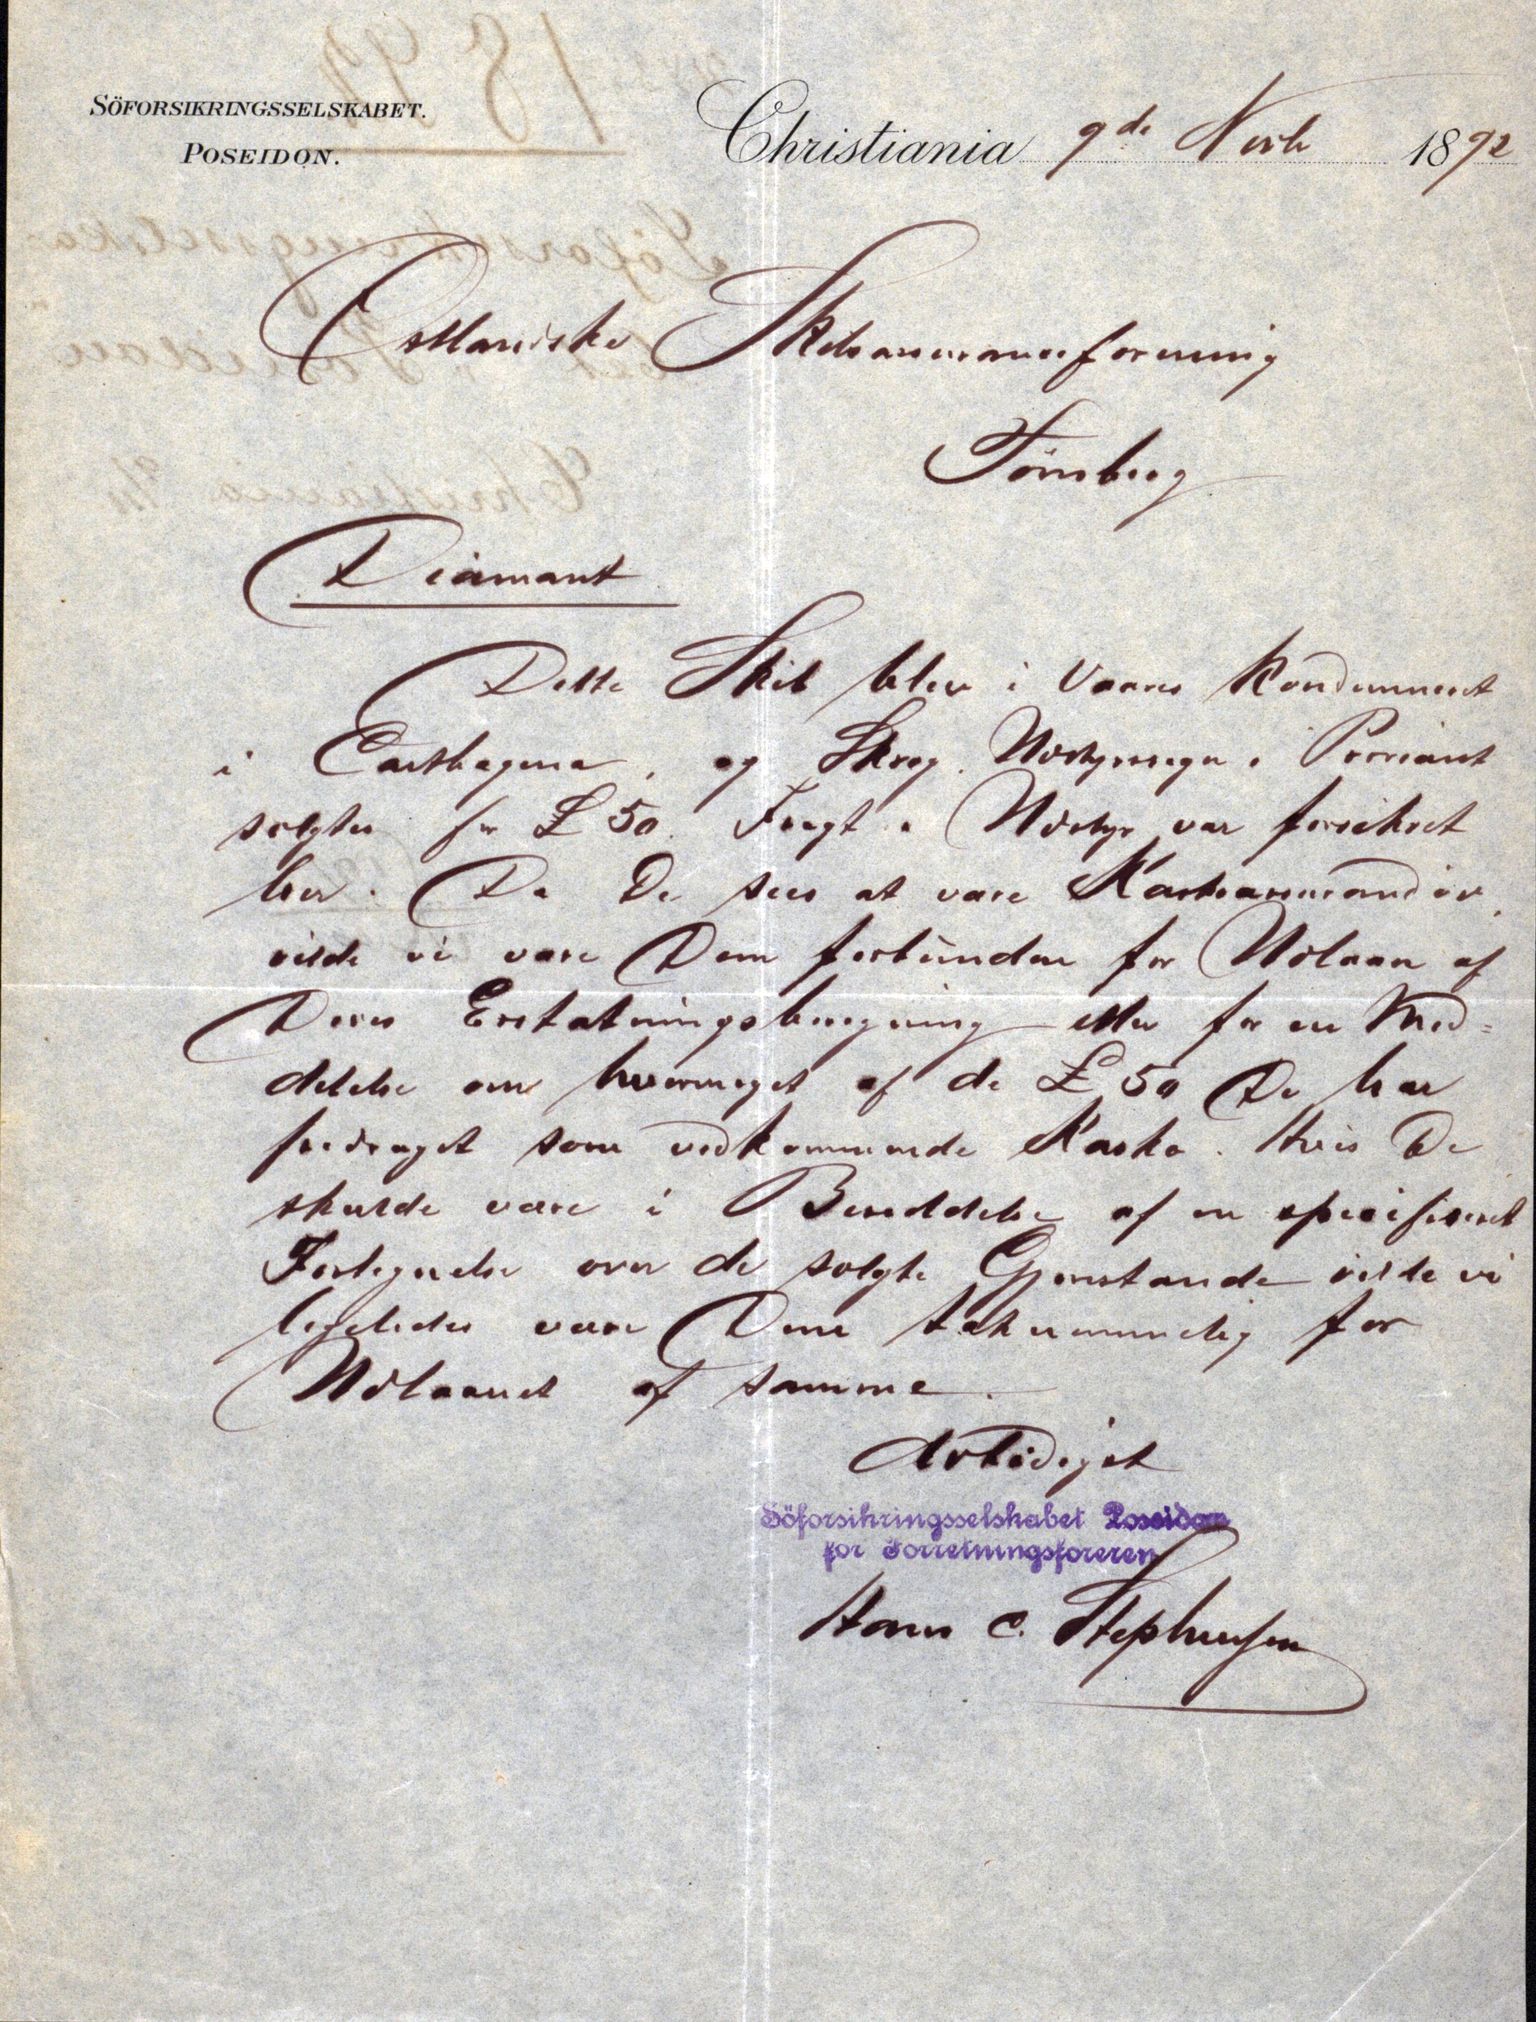 SÖFORSIKRINGSSELSKABET.
POSEIDON.
Christiania 9de Novb 1892
Østlandske Skibsassuranceforening
Tönsberg
Diamant
Dette Skib blev i Vaares kondemneret
i Carthagena, og Skrog, Udstyrsregn. & Proviant
solgtes for £ 50. Fragt & Udstyr var forsikret
her. Da De sees at være Kaskoassurandör,
vilde vi være Dem forbunden for Udlaan af
Deres Erstatningsberegning eller for en Med=
delelse om hvormeget af de £ 50 De har
fradraget som vedkommende Kasko. Hvis De
skulde være i Besiddelse af en specificeret
Fortegnelse over de solgte Gjenstande vilde vi
ligeledes være Dem taknemmelig for
Udlaanet af samme.
Arbödigst
Söforsikringsselskabet Poseidon
for Forretningsföreren
Hans C. Stephensen